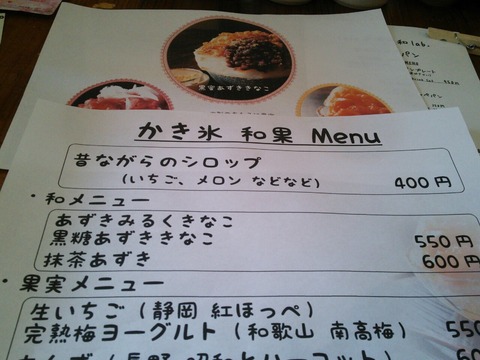 果実あずききなこ
lab.
パン
かき氷 和果 Menu
昔ながらのシロップ
(いちご、メロン などなど) 400円
・和メニュー
あずきみるくきなこ
黒糖あずききなこ 550円
抹茶あずき 600円
・果実メニュー
生いちご(静岡 紅ほっぺ) 550
完熟梅ヨーグルト(和歌山 南高梅) 600